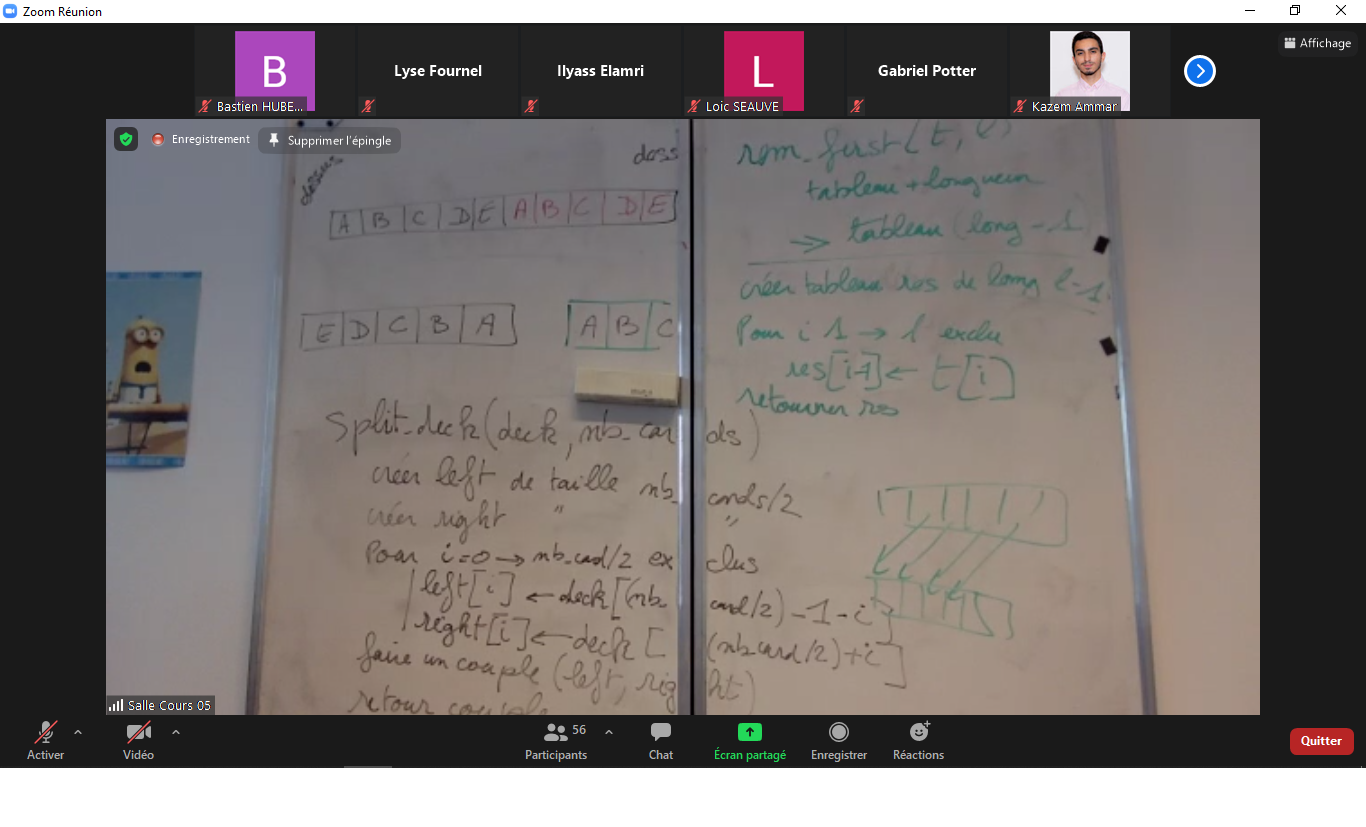 Zoom Réunion
Affichage
B
Bastien HUBE...
Lyse Fournel
Ilyass Elamri
L
Loic SEAUVE
Gabriel Potter
Kazem Ammar
Enregistrement
Supprimer l'épingle
dessus
dess
A B C D E A B C D E
E D C B A
A B C
Split_deck(deck, nb_cards)
créer left de taille nb_cards/2
créer right "  "
Pour i=0 → nb_card/2 exclus
left[i] ← deck[(nb_card/2)-1-i]
right[i] ← deck[(nb_card/2)+i]
faire un couple (left, right)
retour couple
rem_first(t, l)
tableau + longueur
→ tableau (long - 1)
créer tableau res de long l-1.
Pour i 1 → l exclu
res[i-1] ← t[i]
retourner res
Salle Cours 05
Activer
Vidéo
Participants
56
Chat
Écran partagé
Enregistrer
Réactions
Quitter